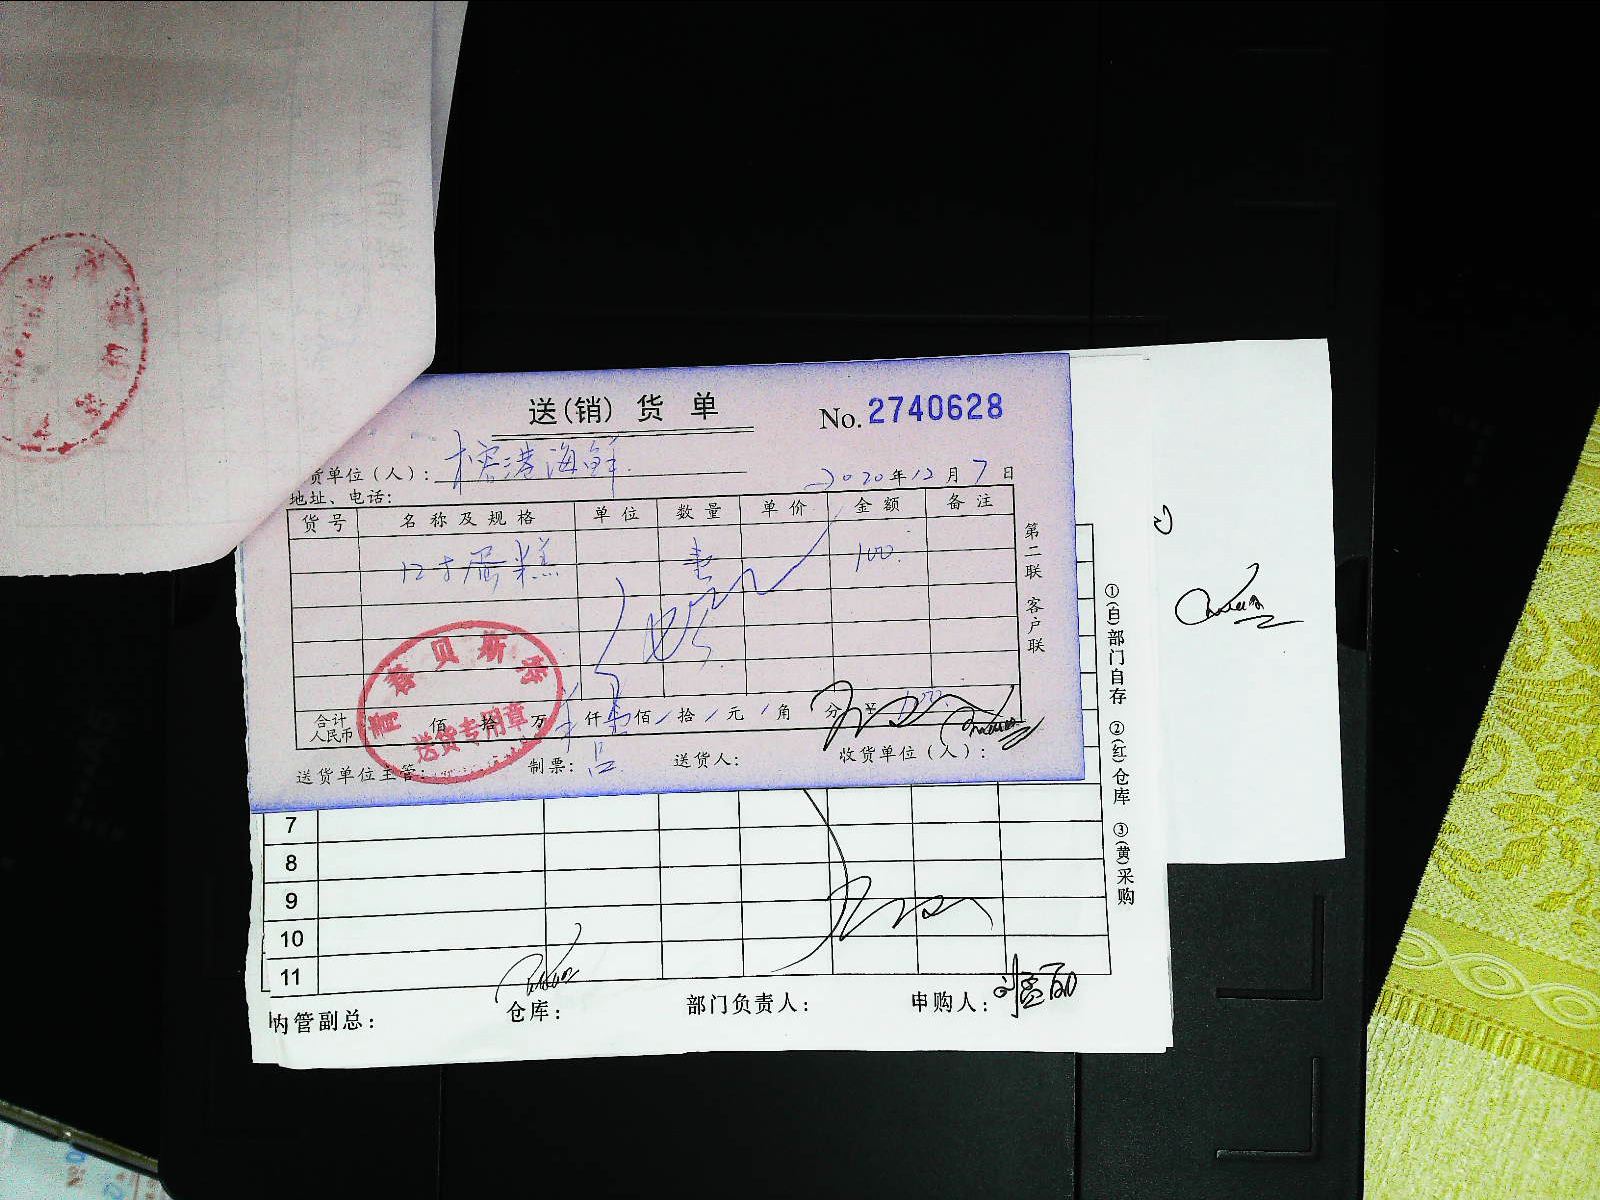 送(销) 货 单
No. 2740628
货单位(人): 榕港海鲜
2020年12月7日
地址、电话:
货号 名称及规格 单位 数量 单价 金额 备注
12寸蛋糕 壹 100.
第二联 客户联
青春贝斯香
送货专用章
合计人民币 佰 拾 万 仟 壹佰 拾 元 角 分 ¥
送货单位主管: 制票: 送货人: 收货单位(人):
①(自)部门自存 ②(红)仓库 ③(黄)采购
7
8
9
10
11
内管副总: 仓库: 部门负责人: 申购人: